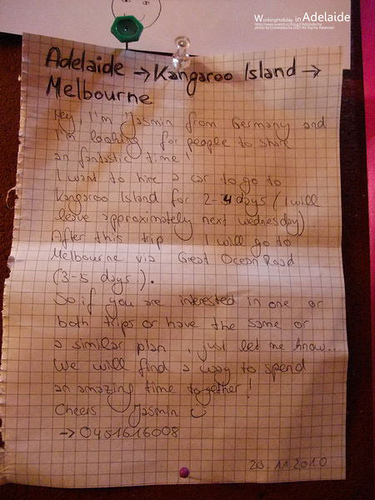 Workingholiday in Adelaide
Adelaide → Kangaroo Island →
Melbourne
Hey, I'm Jasmin from Germany and
I'm looking for people to share
an fantastic time!
I want to hire a car to go to
Kangaroo Island for 2-4 days (I will
leave approximately next wednesday)
After this trip I will go to
Melbourne via Great Ocean Road
(3-5 days).
So if you are interested in one or
both trips or have the same or
a similar plan, just let me know...
We will find a way to spend
an amazing time together!
Cheers Jasmin
→ 0451616008
20.11.2010